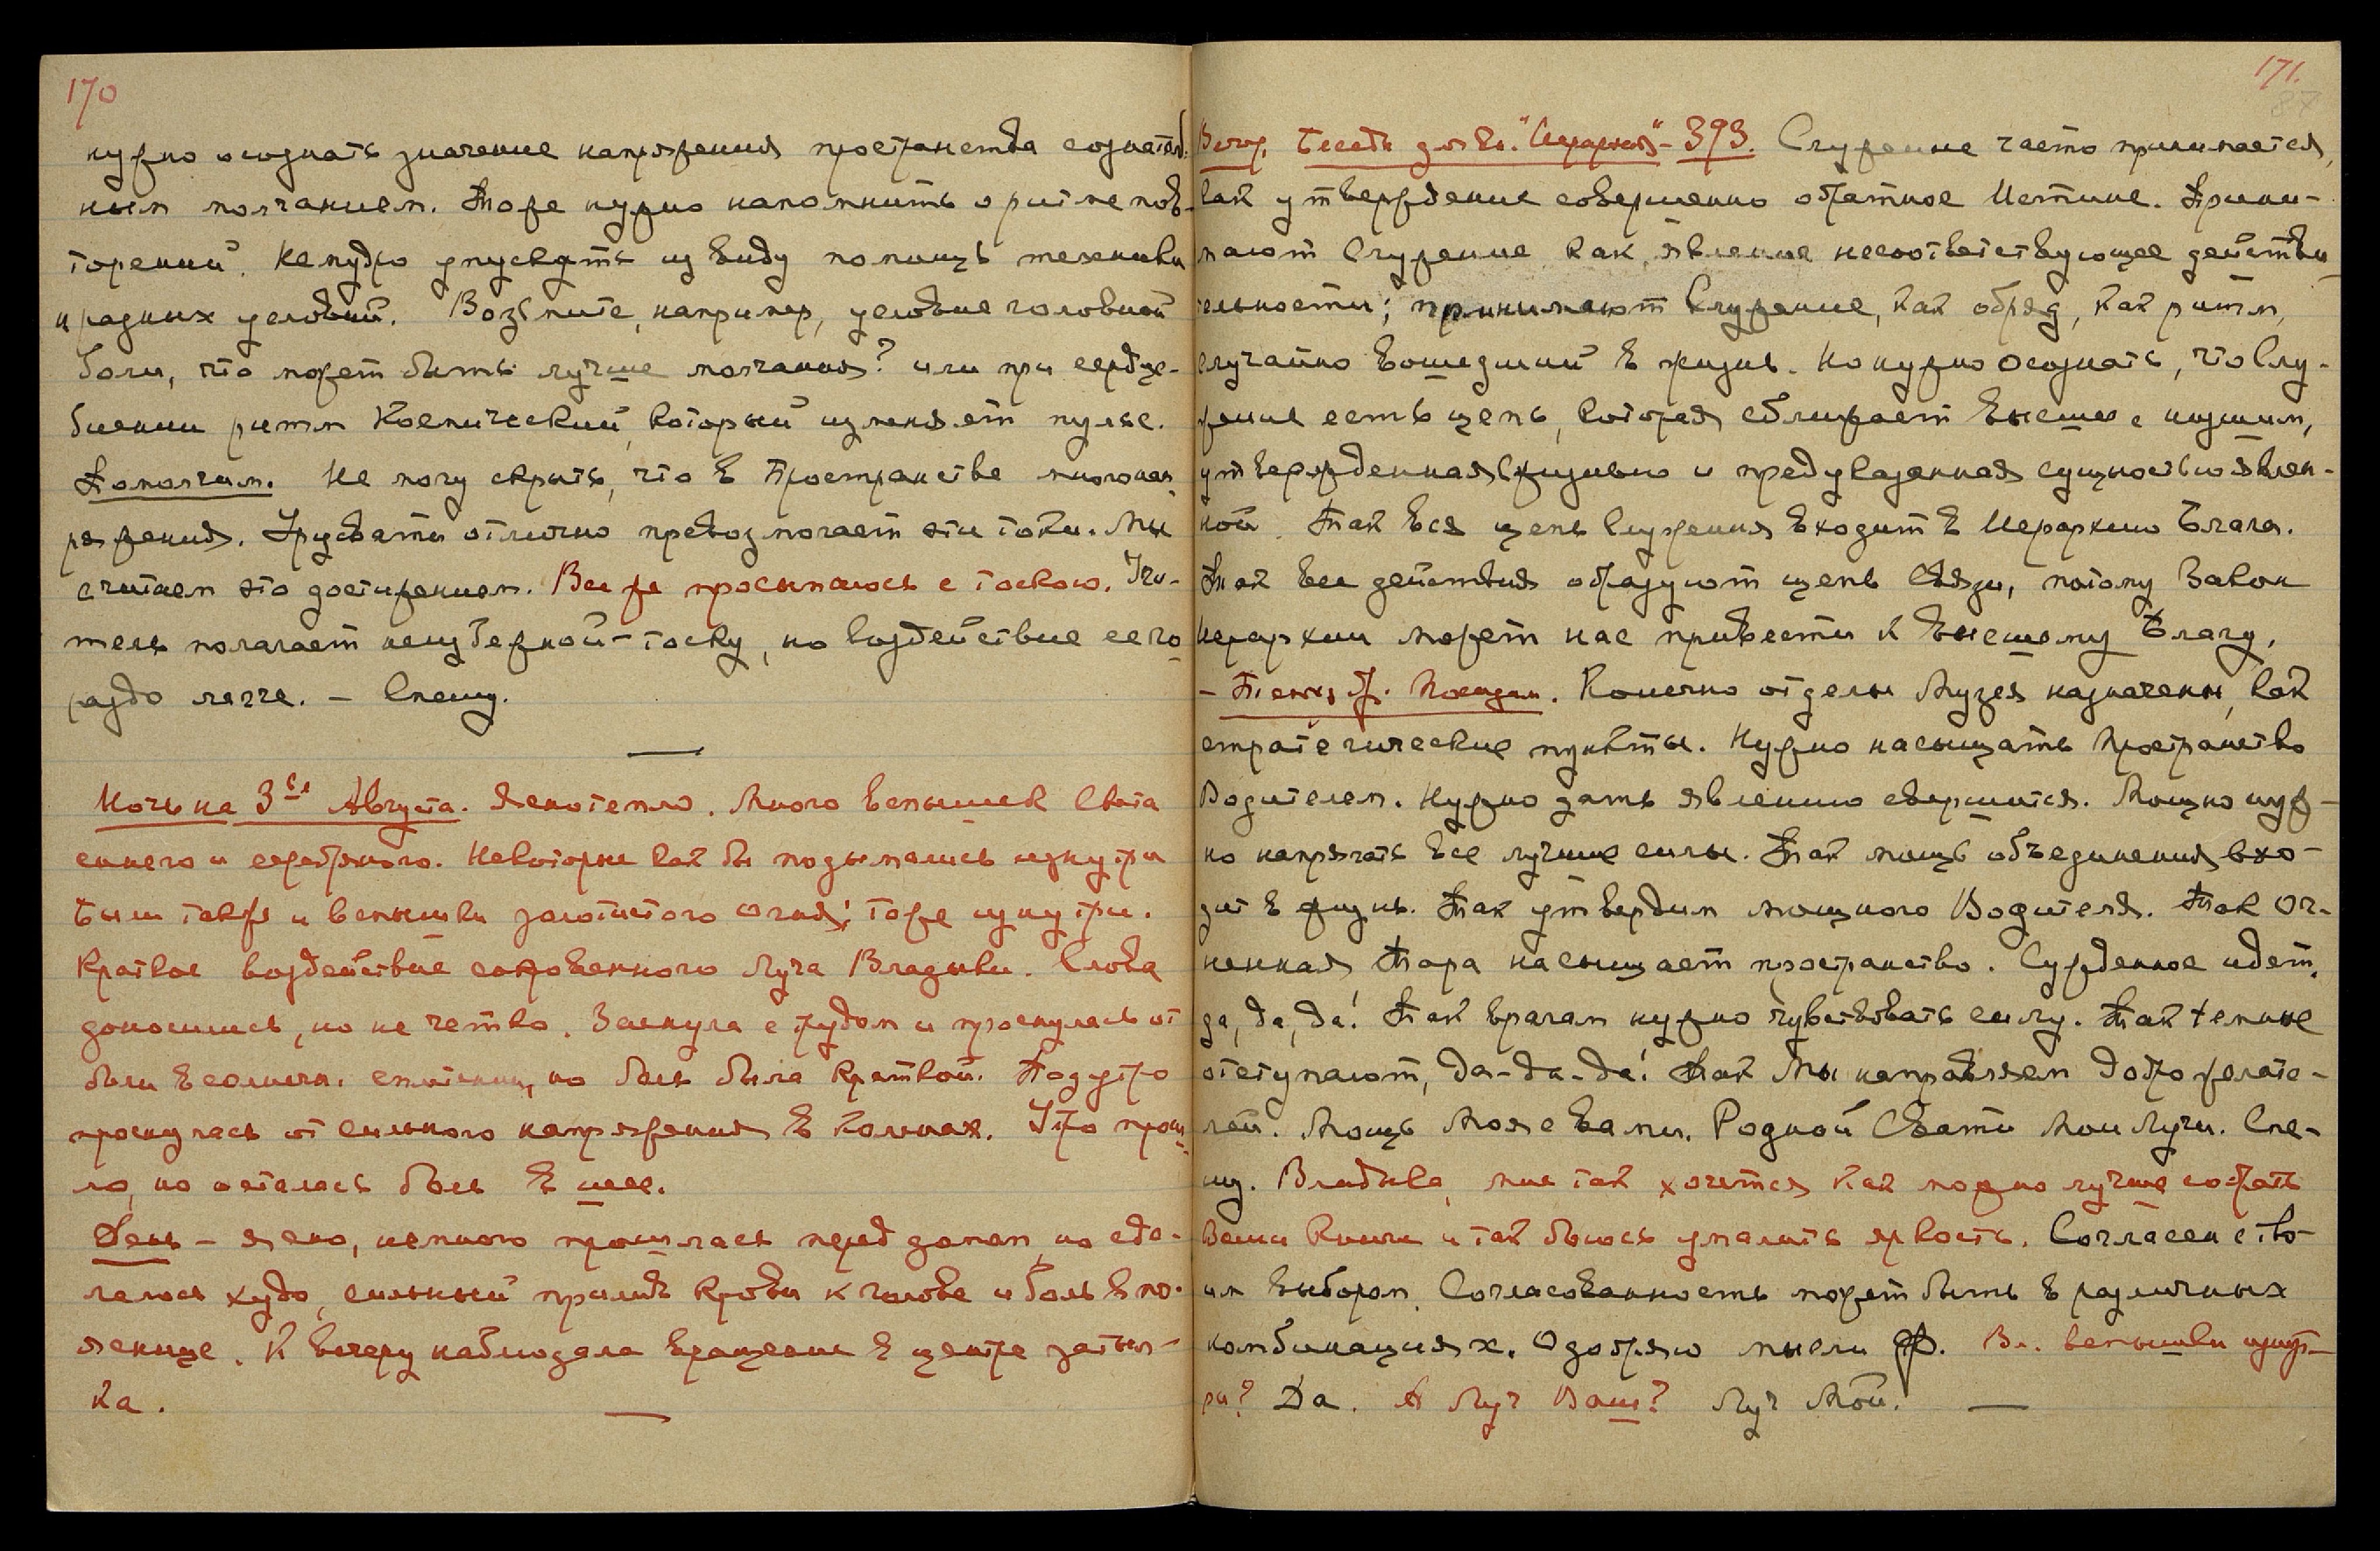 170
нужно осознать значение напряжения пространства сознатель-
ным молчанием. Тоже нужно напомнить о ритме пов-
торений. Немудро упускать из виду помощь механики
и разных условий. Возьмите, например, условие головной
боли, что может быть лучше молчания? или при сердце-
биении ритм Космический, который изменяет пульс.
Помолчим. Не могу скрыть, что в Пространстве много нап-
ряжения. Урусвати отлично превозмогает эти токи. Мы
считаем это достижением. Все же просыпаюсь с тоскою. Учи-
тель полагает неизбежной – тоску, но воздействие её го-
раздо легче. – Спешу.
—
Ночь на 3ье Августа. Ясно тепло. Много вспышек Света
синего и серебряного. Некоторые как бы подымались изнутри
Были также и вспышки золотистого огня; тоже изнутри.
Краткое воздействие сокровенного Луча Владыки. Слова
доносились, но не четко. Заснула с трудом и проснулась от
боли в солнечн. сплетении, но боль была краткой. Под утро
проснулась от сильного напряжения в коленах. Утро прош-
ло, но осталась боль в шее.
День – ясно, немного прошлась перед домом, но сде-
лалось худо, сильный прилив крови к голове и боль в по-
яснице. К вечеру наблюдала вращение в центре затыл-
ка. —
171.
87
Вечер. Беседа для кн. "Иерархия" - 393. Служение часто принимается,
как утверждение совершенно обратное Истине. Прини-
мают Служение как явление несоответствующее действи-
тельности; принимают Служение, как обряд, как ритм,
случайно вошедший в жизнь. Но нужно осознать, что Слу-
жение есть цепь, которая сближает высшее с низшим,
утвержденная жизнью и предуказанная сущностью явлен-
ной. Так вся цепь Служения входит в Иерархию Блага.
Так все действия образуют цепь связи, потому Закон
Иерархии может нас привести к высшему Благу.
– Конечно отделы Музея назначены, как
стратегические пункты. Нужно насыщать Пространство
Водителем. Нужно дать явлению свершиться. Мощно нуж-
но напрягать все лучшие силы. Так мощь объединения вхо-
дит в жизнь. Так утвердим мощного Водителя. Так Ог-
ненная Тара насыщает пространство. Сужденное идет,
да, да, да! Так врагам нужно чувствовать силу. Так темные
отступают, да-да-да! Так Мы направляем доброжелате-
лей. Мощь Моя с вами. Родной Свати Мои Лучи. Спе-
шу. Владыка, мне так хочется как можно лучше собрать
Ваши Книги и так боюсь умалить яркость. Согласен с тво-
им выбором. Согласованность может быть в различных
комбинациях. Одобряю мысли Ф. Вл. вспышки изнут-
ри? Да. А Луч Ваш? Луч Мой. —